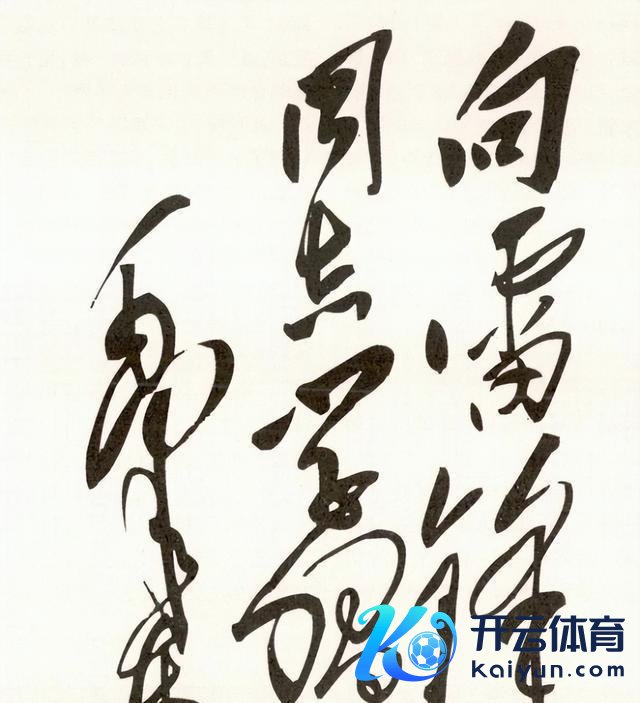 向雷锋
同志学习
毛泽东
开云体育
Kaiyun.com